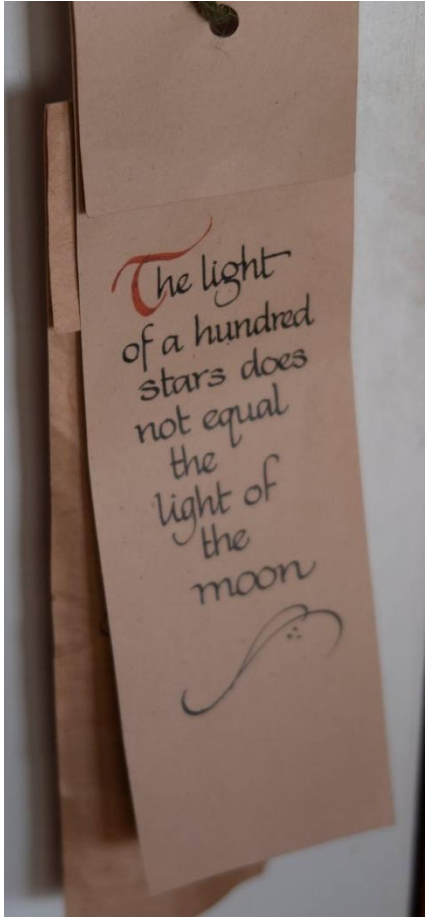 The light
of a hundred
stars does
not equal
the
light of
the
moon